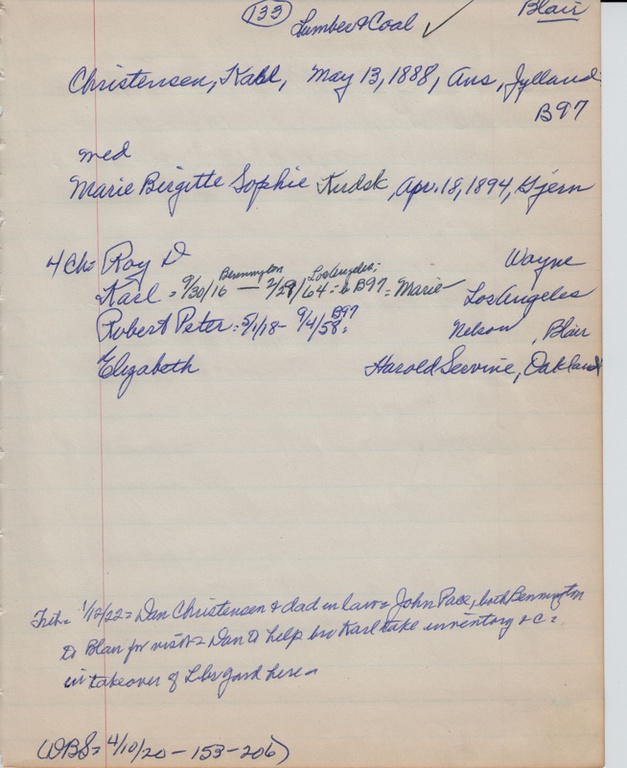 (133) Lumber & Coal ✓ Blair
Christensen, Karl, May 13, 1888, Ans, Jylland:
B97
med
Marie Birgitte Sophie Kudsk, Apr. 18, 1894, Gjern
4 Ch= Roy D Wayne
Karl = 9/30/16 Bennington — 2/29/64 Los Angeles; = b B97 = Marie Los Angeles
Robert Peter: 5/1/18 - 9/4/58: B97 Nelson, Blair
Elizabeth Harold , Oakland
1/12/22 = Dan Christensen & dad in law = John Pace, both Bennington
to Blair for visit = Dan to help bro Karl take inventory & c =
in takeover of Lbr yard here =
(DBS = 4/10/20 - 153 - 206)